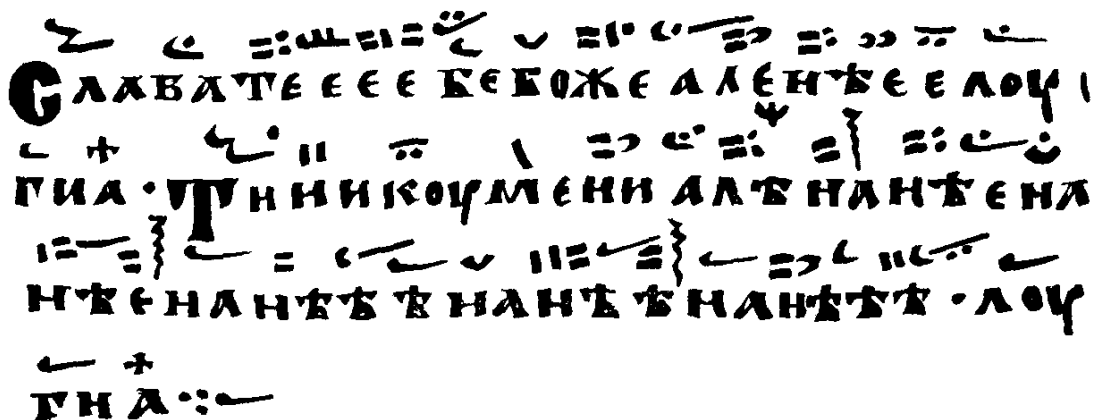 СЛАВАТЕЕЕЕ БЕБОЖЕ АЛЕНѢЕЕЛОУІ
ГИА · ТННИКОУМЕНИ АЛѢНАНѢЕНА
НѢЕНАНѢѢѢНАНѢѢНАНѢѢѢ · ЛОУ
ГИА ·: